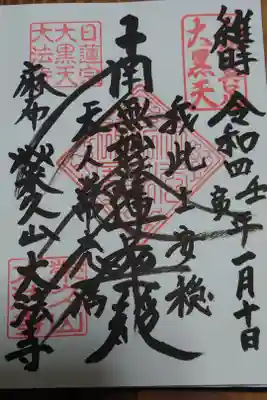 維時 令和四壬寅年一月十日
大黒天
我此土安穏
南無妙法蓮華経
天人常充満
日蓮宗
大黒天
大法寺
麻布 榮久山 大法寺